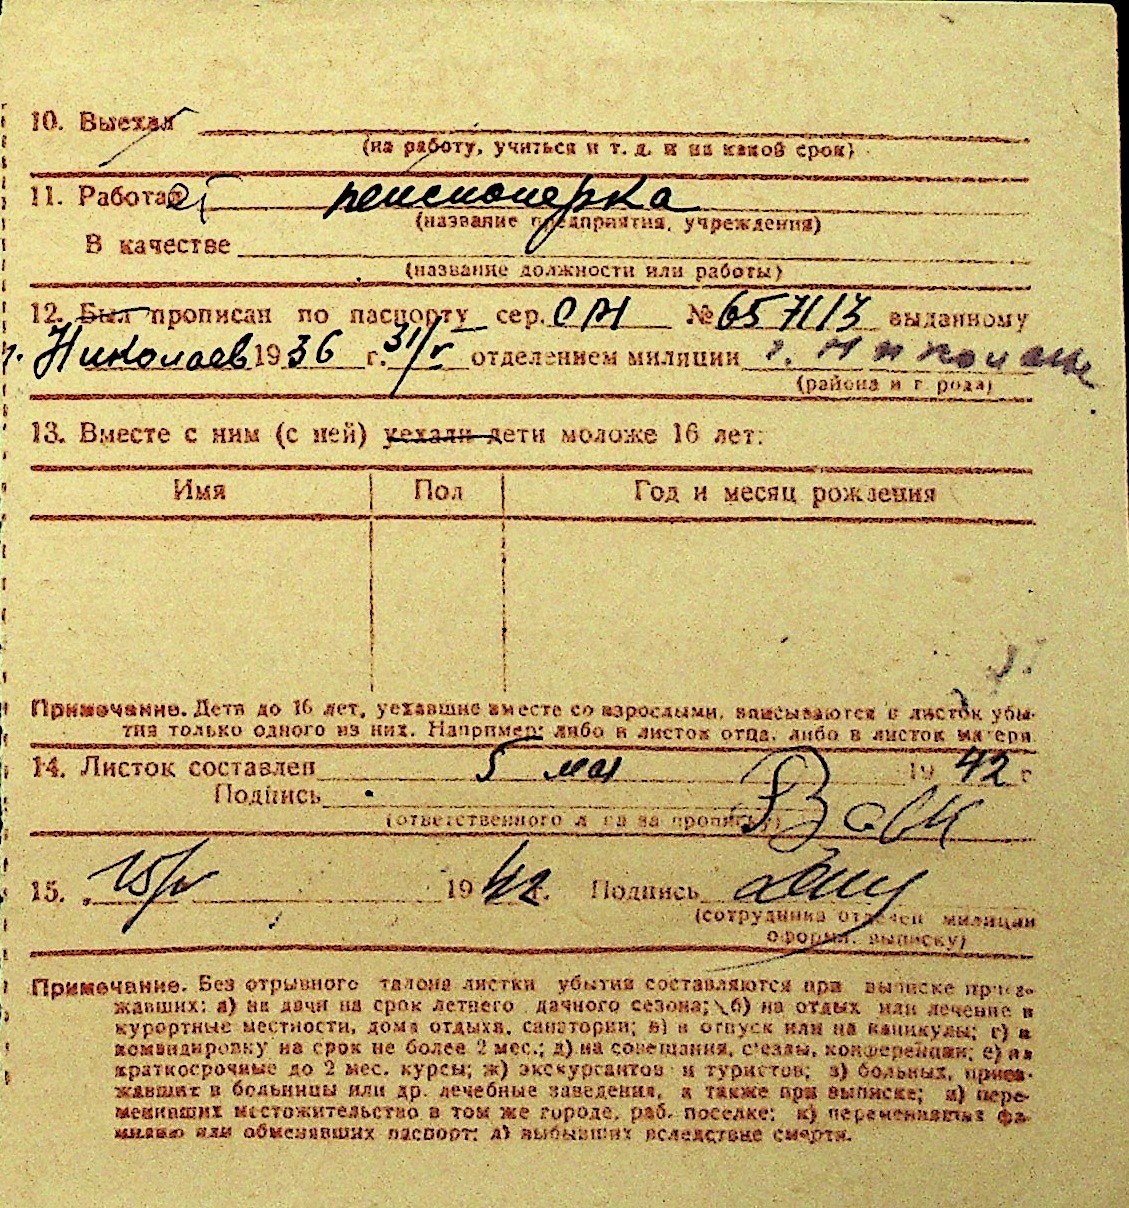 10. Выехал
(на работу, учиться и т. д. и на какой срок)
11. Работает пенсионерка
(название предприятия, учреждения)
В качестве
(название должности или работы)
12. Был прописан по паспорту сер. СМ №657113 выданному
г. Николаев 1936 г. 31/V отделением милиции г. Николаеве
(района и г рода)
13. Вместе с ним (с ней) уехали дети моложе 16 лет:
Имя Пол Год и месяц рождения
Примечание. Дети до 16 лет, уехавшие вместе со взрослыми, вписываются в листок убы-
тия только одного из них. Например: либо в листок отца, либо в листок матери
14. Листок составлен 5 мая 1942 г
Подпись
(ответственного л ца за прописку)
15. 15/V 1942 г. Подпись
(сотрудника отделен милиции
оформл. выписку)
Примечание. Без отрывного талона листки убытия составляются при выписке приез-
жавших: а) на дачи на срок летнего дачного сезона; б) на отдых или лечение в
курортные местности, дома отдыха, санатории; в) в отпуск или на каникулы; г) в
командировку на срок не более 2 мес.; д) на совещания, съезды, конференции; е) на
краткосрочные до 2 мес. курсы; ж) экскурсантов и туристов; з) больных, приез-
жавших в больницы или др. лечебные заведения, а также при выписке; и) пере-
менивших местожительство в том же городе, раб. поселке; к) переменивших фа-
милию или обменявших паспорт; л) выбывших вследствие смерти.